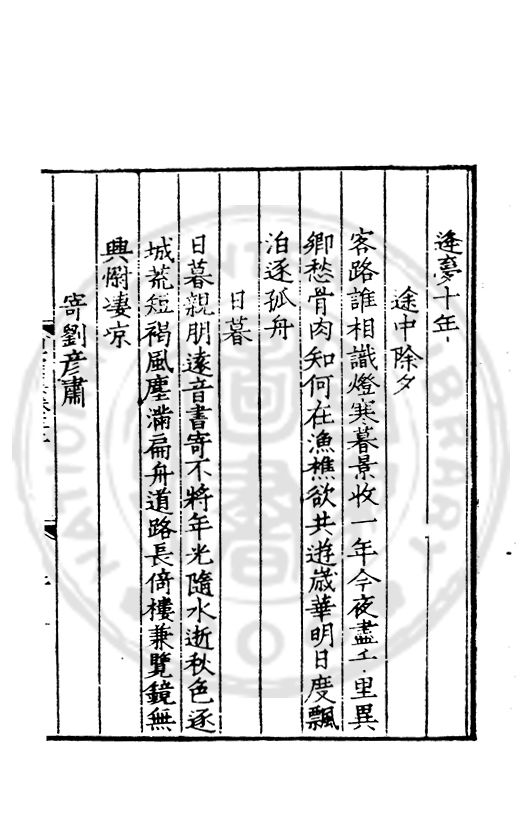 逢夢十年
途中除夕
客路誰相識燈寒暮景收一年今夜盡千里異
鄉愁骨肉知何在漁樵欲共遊歲華明日度飄
泊逐孤舟
日暮
日暮親朋遠音書寄不將年光隨水逝秋色逐
城荒短褐風塵滿扁舟道路長倚樓兼覽鏡無
興慰凄凉
寄劉彥肅